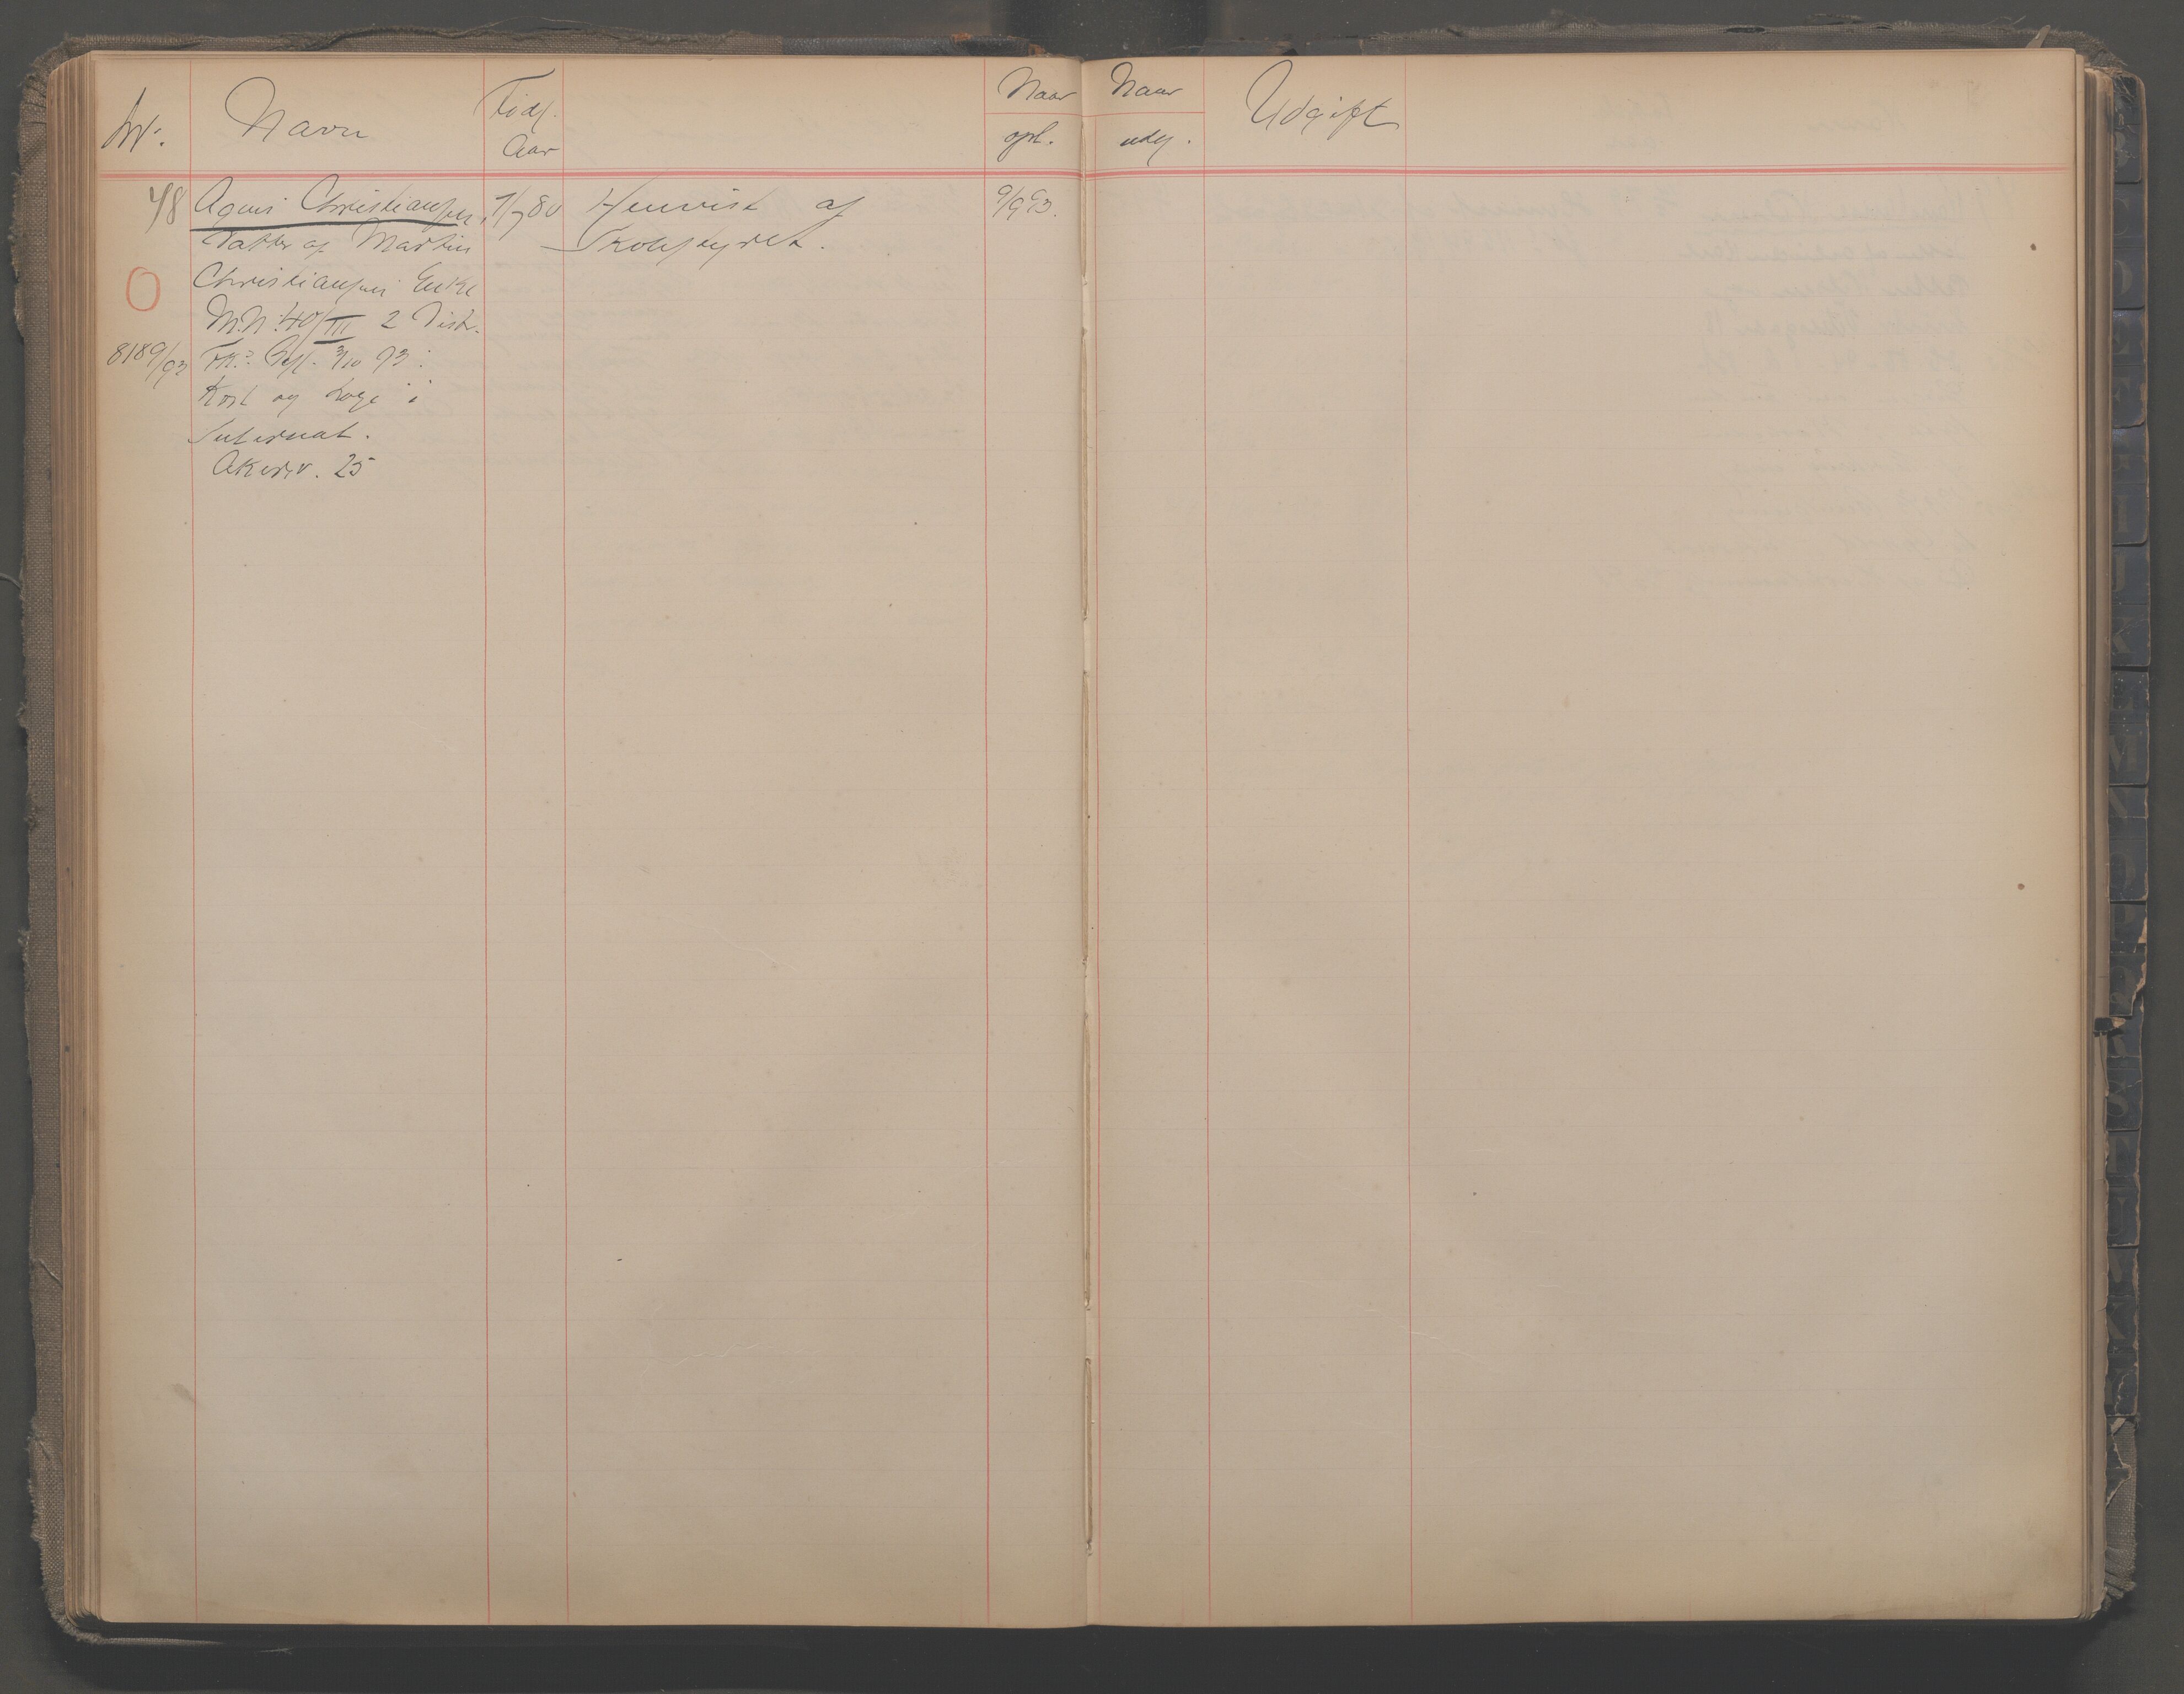 Nr.
Navn
Føds.
Aar
Naar
opt.
Naar
udg.
Udgift
48 Agnes Christiansen, 1/7 80 Henvist af 9/9 93.
Datter af Martin Skolestyret.
Christiansens Enke
M.N. 40/III 2 Distr.
8189/93 Besl. 3/10 93:
Kost og Loge i
Internat.
Akersv. 25